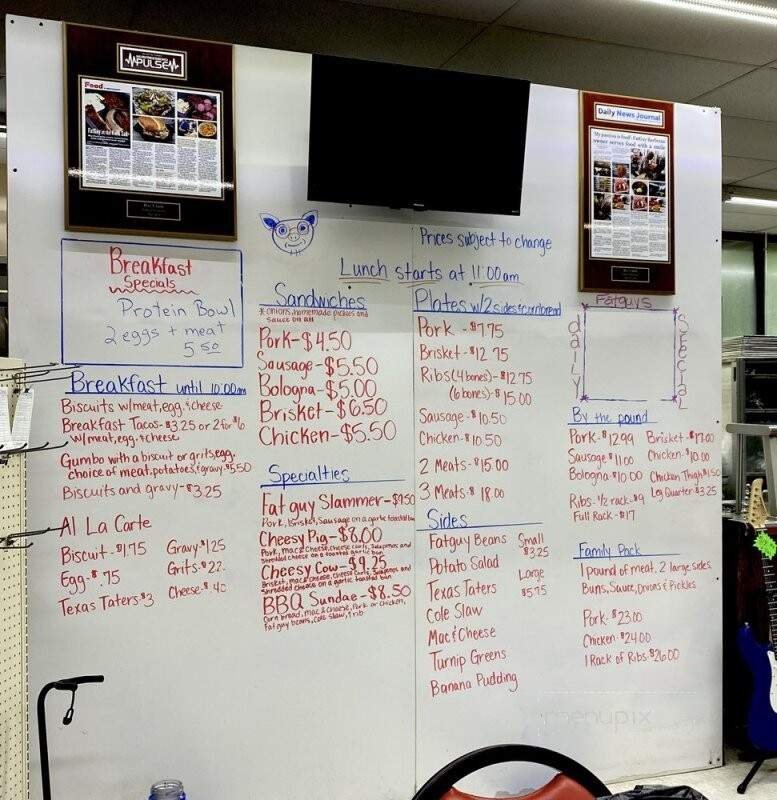 PULSE
Food
Daily News Journal
My passion is food': FatGuy Barbecue
owner serves food with a smile
Prices subject to change
Lunch starts at 11:00am
Breakfast
Specials
Protein Bowl
2 eggs + meat
5 50
Breakfast until 10:00am
Biscuits w/meat, egg, & cheese
Breakfast Tacos-$3.25 or 2 for $6
w/meat, egg, & cheese
Gumbo with a biscuit or grits, egg,
choice of meat, potatoes, & gravy-$5.50
Biscuits and gravy-$3.25
Al La Carte
Biscuit-$1.75 Gravy-$1.25
Egg-$.75 Grits-$2.22
Texas Taters-$3 Cheese-$.40
Sandwiches
* onions, homemade pickles and
sauce on all
Pork-$4.50
Sausage-$5.50
Bologna-$5.00
Brisket-$6.50
Chicken-$5.50
Specialties
Fat guy Slammer-$9.50
Pork, Brisket, Sausage on a garlic toasted bun
Cheesy Pig-$8.00
Pork, mac & cheese, cheese curls, Jalapenos and
shredded cheese on a toasted garlic bun
Cheesy Cow-$9.25
Brisket, mac & cheese, cheese curls, Jalapenos and
shredded cheese on a garlic toasted bun
BBQ Sundae-$8.50
Corn bread, mac & cheese, Pork or Chicken,
Fatguy beans, Cole Slaw, 1 rib
Plates w/2 sides & cornbread
Pork-$7.75
Brisket-$12.75
Ribs (4 bones)-$12.75
(6 bones)-$15.00
Sausage-$10.50
Chicken-$10.50
2 Meats-$15.00
3 Meats-$18.00
Sides
Fatguy Beans Small
$3.25
Potato Salad
Texas Taters Large
$5.75
Cole Slaw
Mac & Cheese
Turnip Greens
Banana Pudding
Fatguys
daily
Special
By the pound
Pork-$12.99 Brisket-$17.00
Sausage $11.00 Chicken-$10.00
Bologna-$10.00 Chicken Thigh $1.50
Ribs-1/2 rack-$9 Leg Quarter-$3.25
Full Rack-$17
Family Pack
1 pound of meat, 2 large sides,
Buns, Sauce, Onions & Pickles
Pork-$23.00
Chicken-$24.00
1 Rack of Ribs-$26.00
menupix